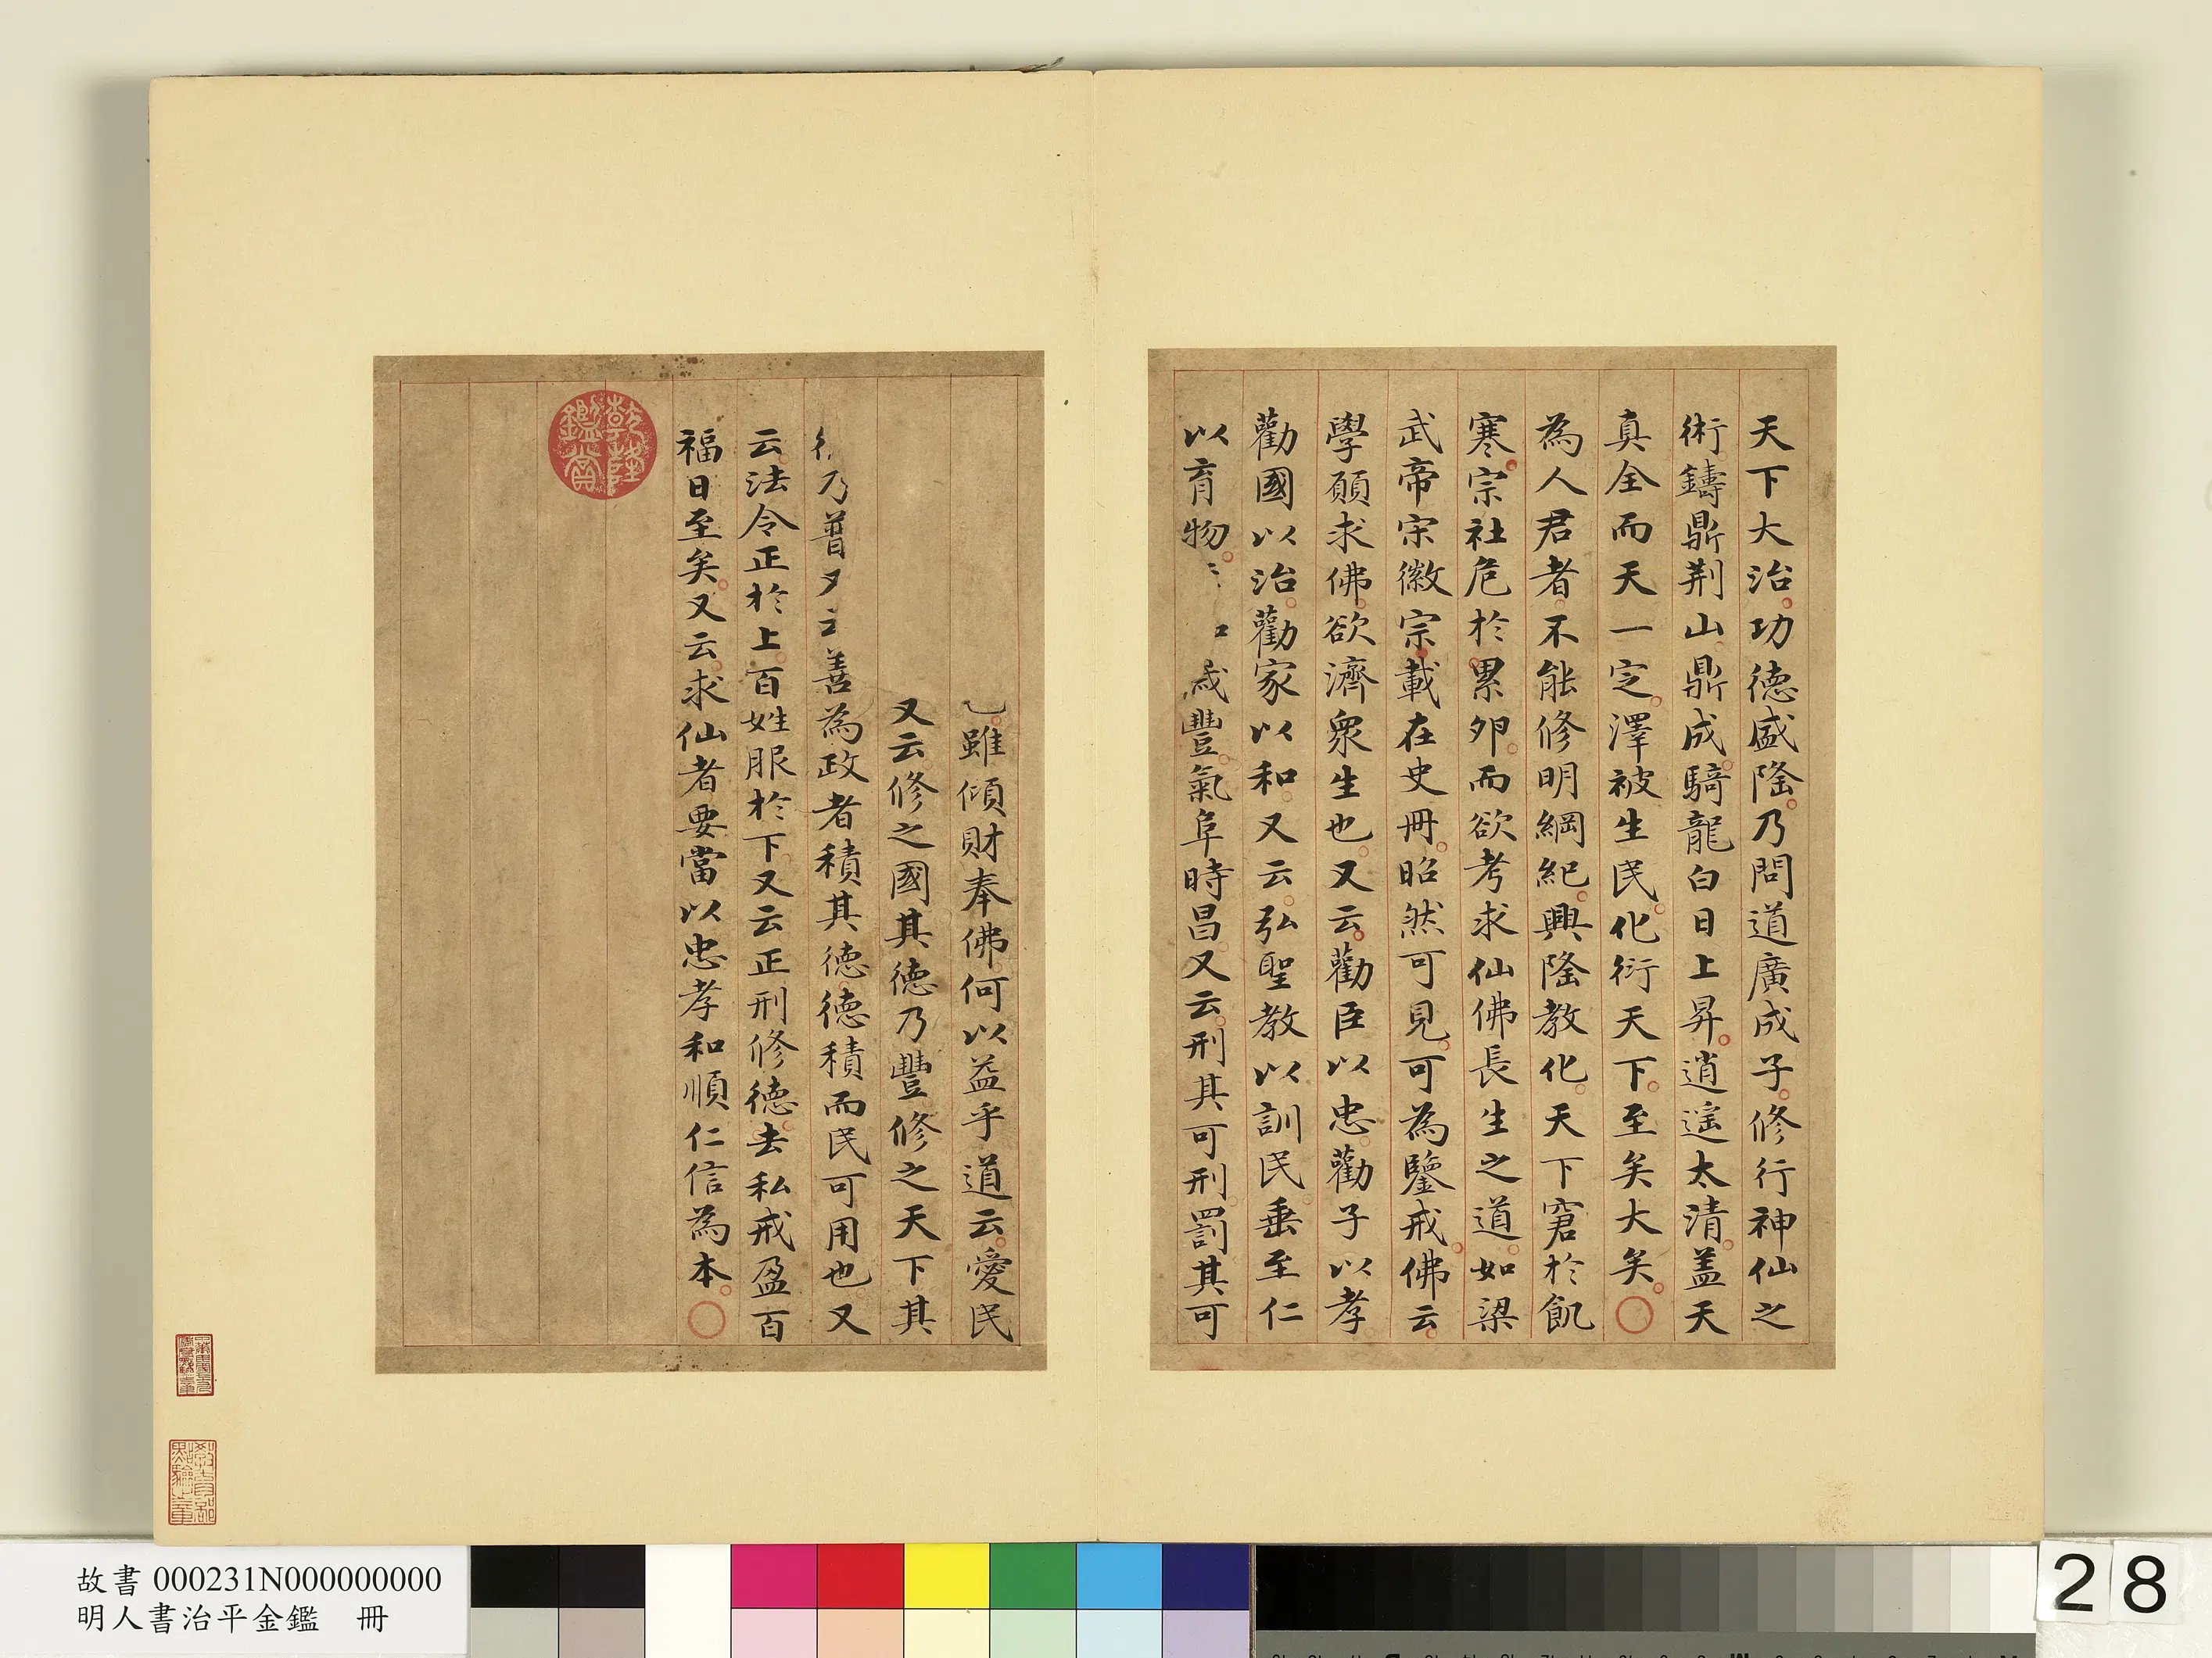 天下大治功德盛隆乃問道廣成子修行神仙之
術鑄鼎荆山鼎成騎龍白日上昇逍遥太清盖天
真全而天一定澤被生民化衍天下至矣大矣
為人君者不能修明綱紀興隆教化天下窘於飢
寒宗社危於累卵而欲考求仙佛長生之道如梁
武帝宋徽宗載在史冊昭然可見可為鑒戒佛云
學願求佛欲濟衆生也又云勸臣以忠勸子以孝
勸國以治勸家以和又云弘聖教以訓民垂至仁
以育物歲豐氣阜時昌又云刑其可刑罰其可
雖傾財奉佛何以益乎道云愛民
又云修之國其德乃豐修之天下其
乃普善為政者積其德德積而民可用也又
云法令正於上百姓服於下又云正刑修德去私戒盈百
福日至矣又云求仙者要當以忠孝和順仁信為本
乾隆鑑賞
教育部點驗之章
故書 000231N000000000
明人書治平金鑑 冊
28